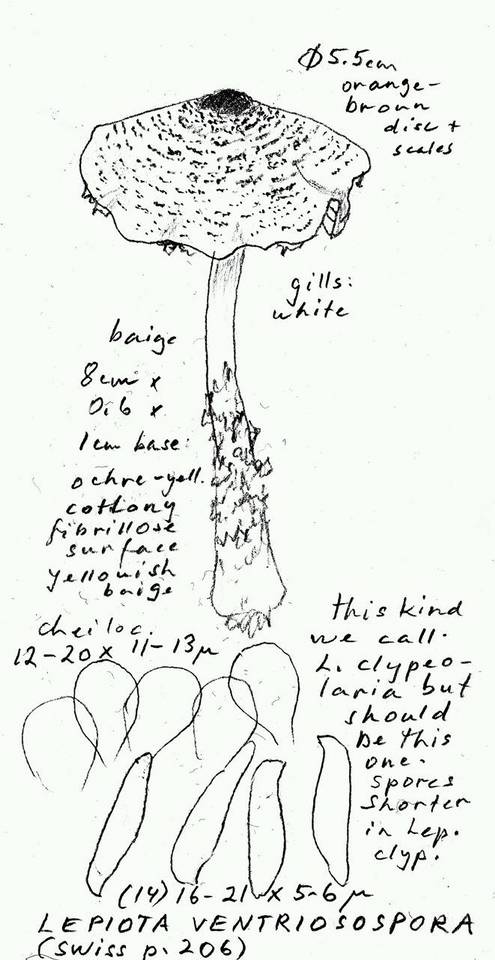 Ø 5.5cm
orange-
brown
disc +
scales
gills:
white
baige
8cm x
0.6 x
1cm base:
ochre-yell.
cottony
fibrillose
surface
yellowish
baige
cheiloc.
12-20 x 11-13µ
this kind
we call.
L. clypeo-
laria but
should
be this
one.
spores
shorter
in Lep.
clyp.
(14) 16-21 x 5-6 µ
LEPIOTA VENTRIOSOSPORA
(Swiss p. 206)